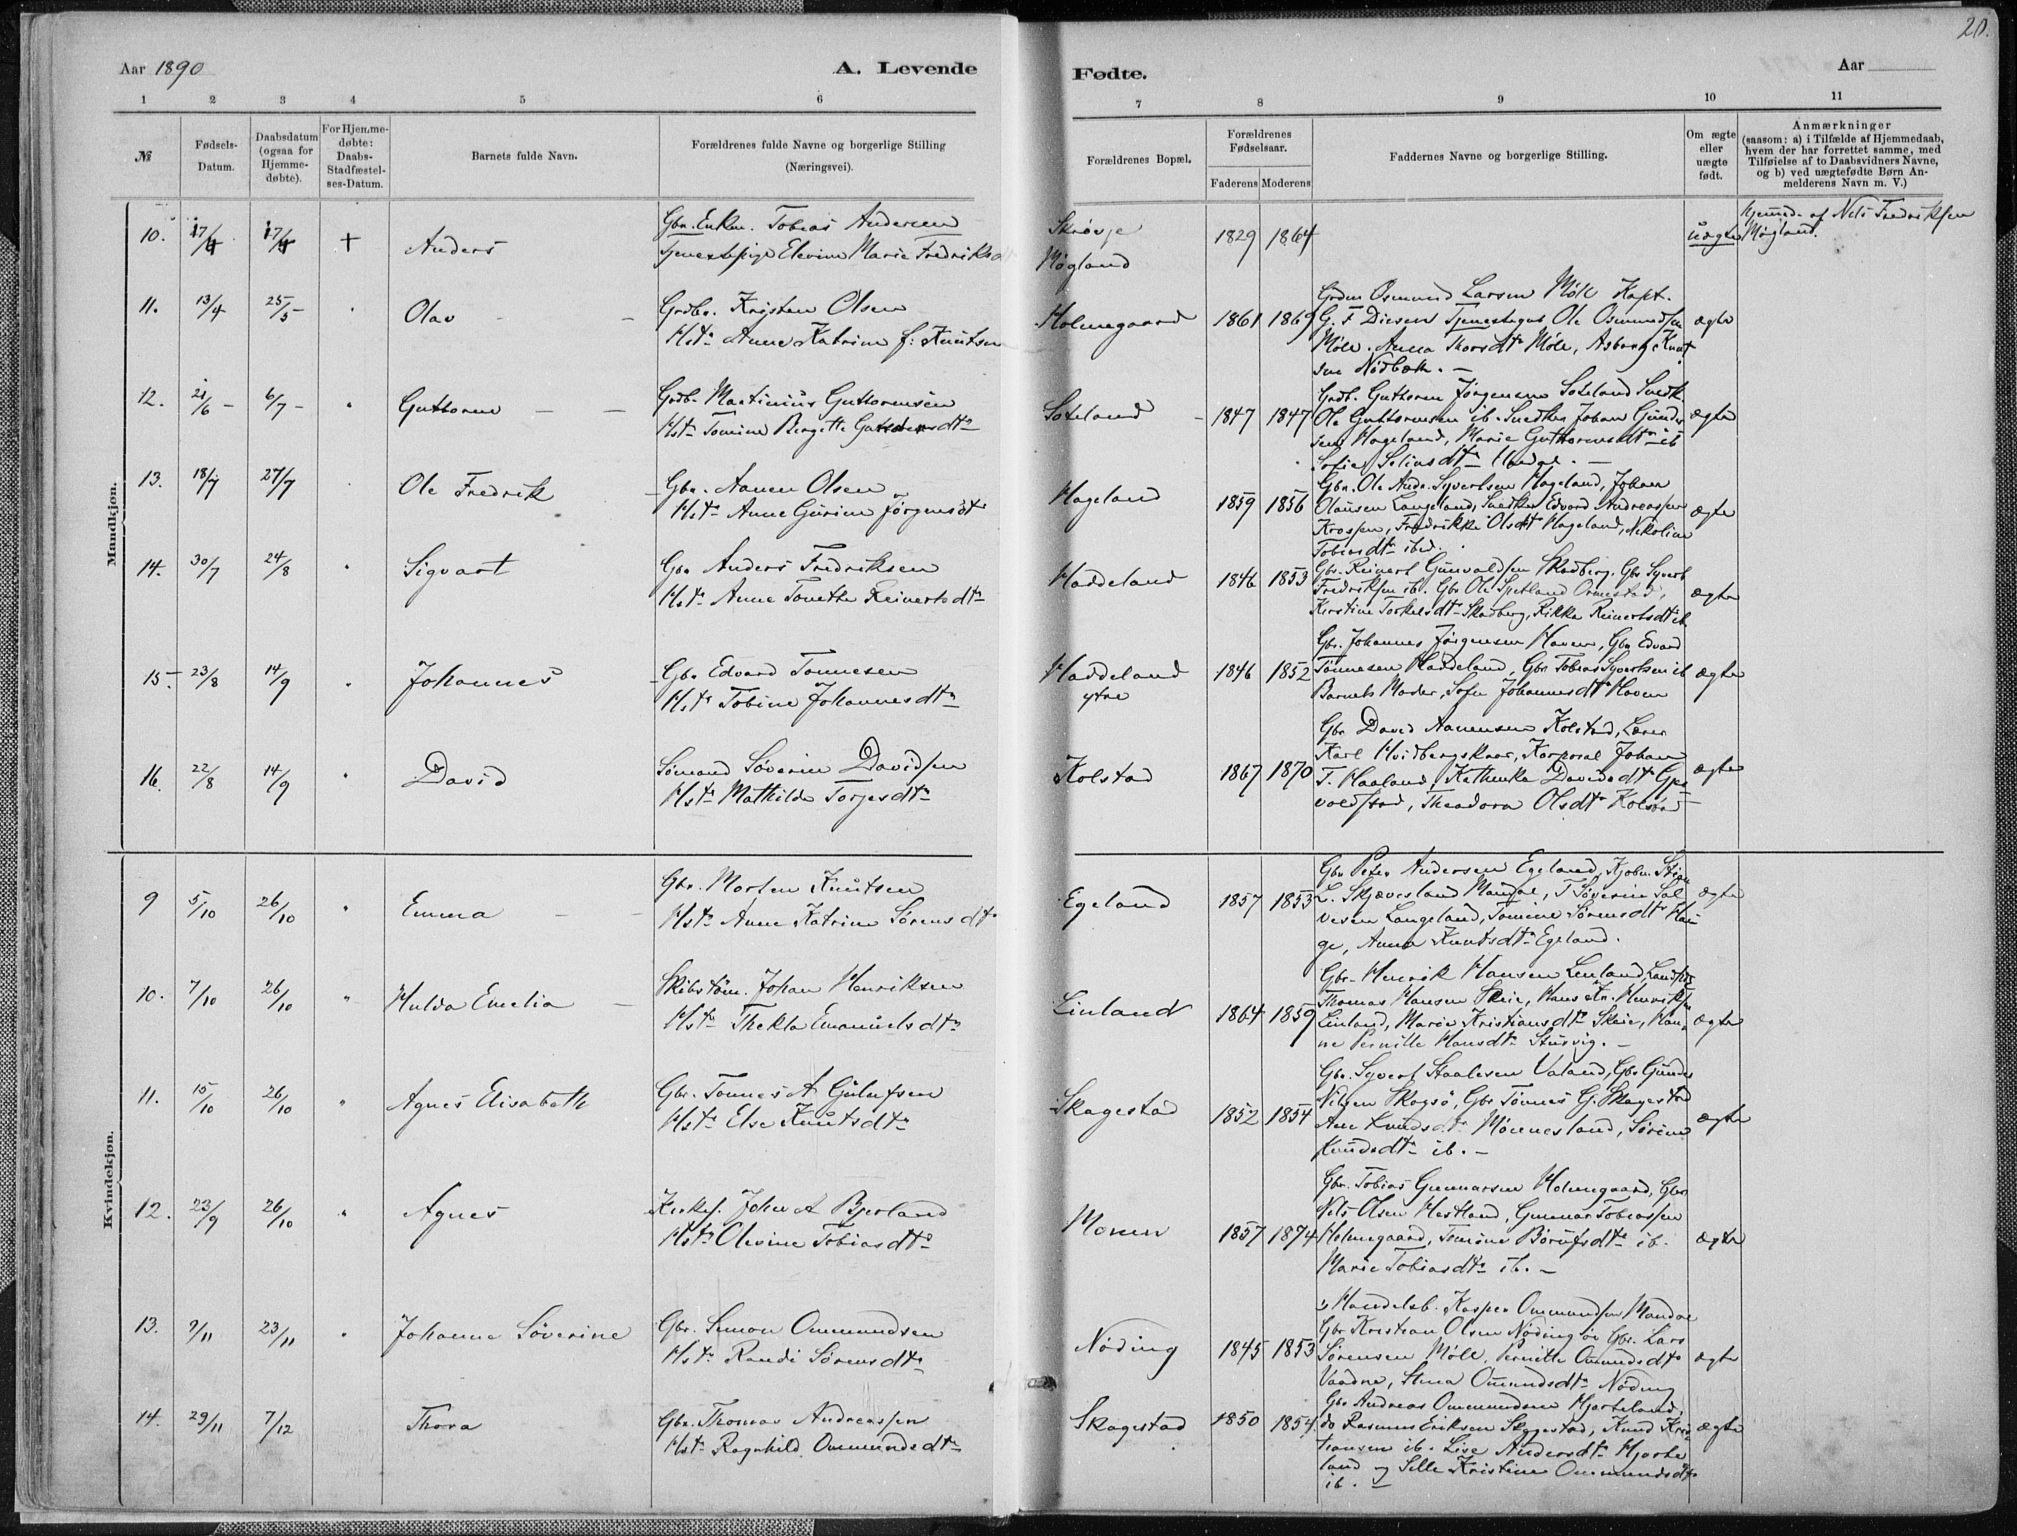 20.
Aar 1890
A. Levende
Fødte.
Aar
1 2 3 4 5 6 7 8 9 10 11
№
Fødsels-
Datum.
Daabsdatum
(ogsaa for
Hjemme-
døbte).
For Hjemme-
døbte:
Daabs-
Stadfæstel-
ses-Datum.
Barnets fulde Navn.
Forældrenes fulde Navne og borgerlige Stilling
(Næringsvei).
Forældrenes Bopæl.
Forældrenes
Fødselsaar.
Faderens Moderens
Faddernes Navne og borgerlige Stilling.
Om ægte
eller
uægte
født.
Anmærkninger
(saasom: a) i Tilfælde af Hjemmedaab,
hvem der har forrettet samme, med
Tilføielse af to Daabsvidners Navne,
og b) ved uægtefødte Børn An-
melderens Navn m. V.)
Mandkjøn.
10. 17/4 17/4 + Anders
Gbr. Enkm. Tobias Andersen
Tjenestepige Elevine Marie Fredriksdt
Møgland
1829 1864
uægte
Hjemmed. af Nils Fredriksen
Møgland.
11. 13/4 25/5 Olav
Grdbr. Krysten Olsen
Hst. Anne Katrine f. Knutsen
Holmegaard 1861 1869
Grdm Osmund Larsen Møll Kapt.
G. F Diesen Tjenestegut Ole Osmundsen
Møll. Anna Thorsdtr Møll, Asborg Knut
sen Nødbæk. —
ægte
12. 21/6 — 6/7 — Guttorm
Grdb. Martinius Guttormsen
Hst. Tomine Bergette
Soteland — 1847 1847
Grdb. Guttorm Jørgensen Soteland Snedk.
Ole Guttormsen ib. Snedker Johan Gunder
sen Hageland, Marie Guttormsdtr ib
Sofie —
ægte
13. 18/7 27/7 Ole Fredrik
Gbr. Aanen Olsen
Hst. Anne Gurine Jørgensdt
Hageland 1859 1856
Gbr. Ole Andr. Syvertsen Hageland, Johan
Olausen Langeland, Snedker Edvard Andreassen
Krossen, Fredrikke Olsdt Hageland, Nikoline
Tobiasdtr ibid.
ægte
14. 30/7 24/8 Sigvart
Gbr Anders Fredriksen
Hst. Anne Tonette Reinertsdtr
Haddeland 1846 1853
Gbr. Reinert Gunvaldsen Skadberg, Gbr Syvert
Fredriksen ib. Gbr Ole Ormestad,
Kirstine Torkelsdtr Skadberg, Rikka Reinertsdt ib
ægte
15. 23/8 14/9 Johannes
Gbr Edvard Tønnesen
Hst. Tobine Johannesdtr
Haddeland
ytre
1846 1852
Gbr. Johannes Jørgensen Haven, Gbr Edvard
Tønnesen Haddeland, Gbr Tobias Syvertsen ib
Barnets Moder, Sofie Johannesdt Haven
ægte
16. 22/8 14/9 David
Sømand Søverin Davidsen
Hst. Mathilde Torjesdtr
Kolstad 1867 1870
Gbr David Aanensen Kolstad, Lærer
Karl Hvidbergskaar, Korporal Johan
T. Haaland, Kathinka Davidsdt
Theodora Olsdtr
ægte
Kvindekjøn.
9 5/10 26/10 Emma
Gbr. Morten Knutsen
Hst. Anne Katrine Sørensdt
Egeland 1857 1853
Gbr Peter Andersen Egeland, Kjøbm.
L. Skjævesland Mandal, T Søverin Sal
vesen Langeland, Tomine Sørensdt Hau
ge, Anna Knutsdtr Egeland.
ægte
10. 7/10 26/10 Hulda Emelia
Skibstøm. Johan Henriksen
Hst. Thekla Emanuelsdtr
Linland 1864 1859
Gbr. Henrik Hansen Linland,
Thomas Hansen Skeie, Hans Kr. Henriksen
Linland, Marie Kristiansdtr Skeie, Han-
ne Pernille Hansdtr —
ægte
11. 15/10 26/10 Agnes Elisabeth
Gbr. Tønnes A Gulufsen
Hst. Else Knutsdtr
Skagestad 1852 1854
Gbr. Syvert Staalesen Valand, Gbr Gunder
Nilsen Skogsø, Gbr Tønnes G. Skagestad
Ane Knudsdt Mønnesland, Sørine
Knudsdtr ib. —
ægte
12. 23/9 26/10 Agnes
Kirkes. Johan A Bjerland
Hst. Olevine Tobiasdtr
Monen 1857 1874
Gbr. Tobias Gunnarsen Holmegaard, Gbr
Nils Olsen Hestland, Gunnar Tobiassen
Holmegaard, Tomine ib.
Marie Tobiasdtr ib. —
ægte
13. 9/11 23/11 Johanne Søverine
Gbr. Simon Ommundsen
Hst. Randi Sørensdtr
Nøding 1845 1853
Handelsb. Kasper Ommundsen Mandal
Gbr Kristian Olsen Nøding Gbr. Lars
Sørensen Møll, Pernille Omundsdt
Stina Omundsdt. Nøding
ægte
14. 29/11 7/12 Thora
Gbr. Thomas Andreassen
Hst. Ragnhild Ommundsdtr
Skagestad 1850 1854
Gbr Andreas Ommundsen Hjorteland,
do Rasmus Eriksen Skagestad, Knud Kris
tiansen ib. Lise Andersdt Hjorte
land og Sille Kristine Ommundsdt
ib. —
ægte